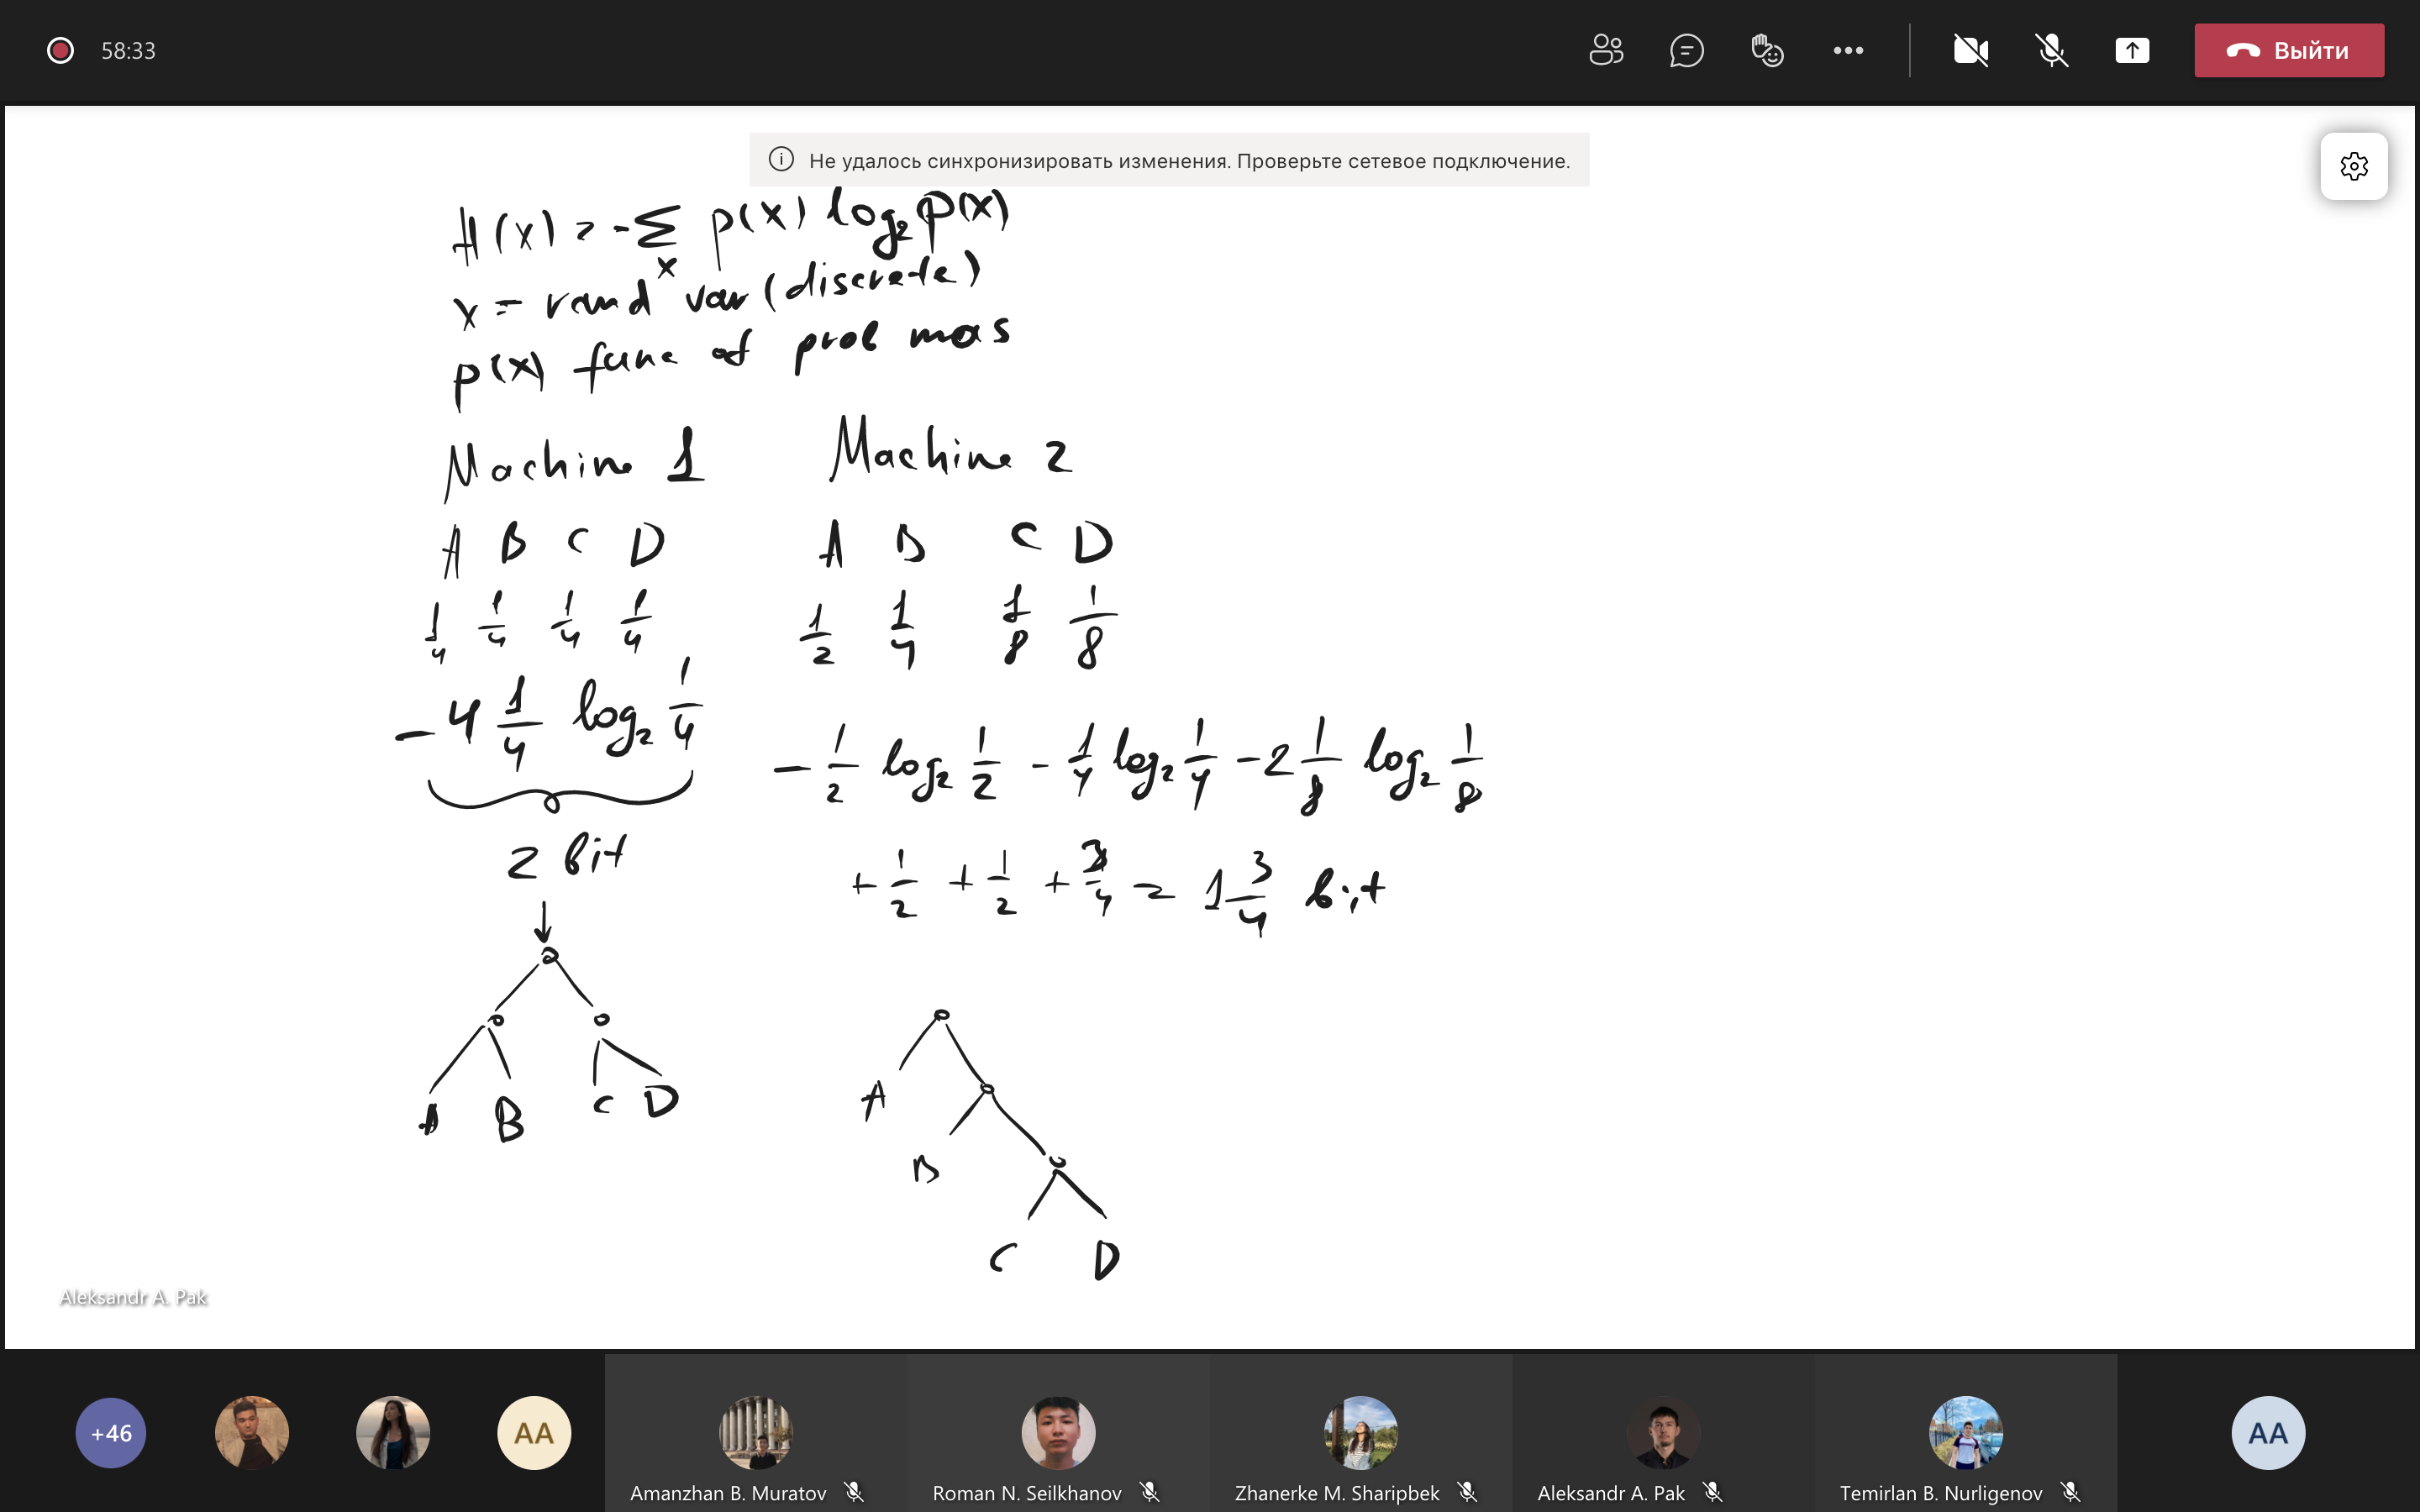 58:33
Выйти
Не удалось синхронизировать изменения. Проверьте сетевое подключение.
H(x) = -∑ p(x) log₂ p(x)
x
x = rand var (discrete)
p(x) func of prob mas
Machine 1 Machine 2
A B C D A B C D
1/4 1/4 1/4 1/4 1/2 1/4 1/8 1/8
- 4 1/4 log₂ 1/4
- 1/2 log₂ 1/2 - 1/4 log₂ 1/4 - 2 1/8 log₂ 1/8
2 bit
+ 1/2 + 1/2 + 3/4 = 1 3/4 bit
A B C D
A
B
C D
Aleksandr A. Pak
+46
AA
Amanzhan B. Muratov
Roman N. Seilkhanov
Zhanerke M. Sharipbek
Aleksandr A. Pak
Temirlan B. Nurligenov
AA